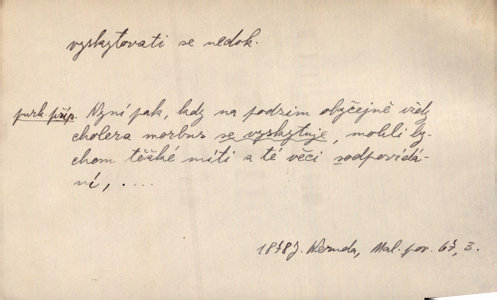 vyskytovati se nedok.
purk. přip. Nyní pak, kdy na podzim obyčejně vždy
cholera morbus se vyskytuje, mohli by-
chom těžké míti a té věci zodpovídá-
ní, ....
1878 J. Wenda, Mal. por. 67, 3.